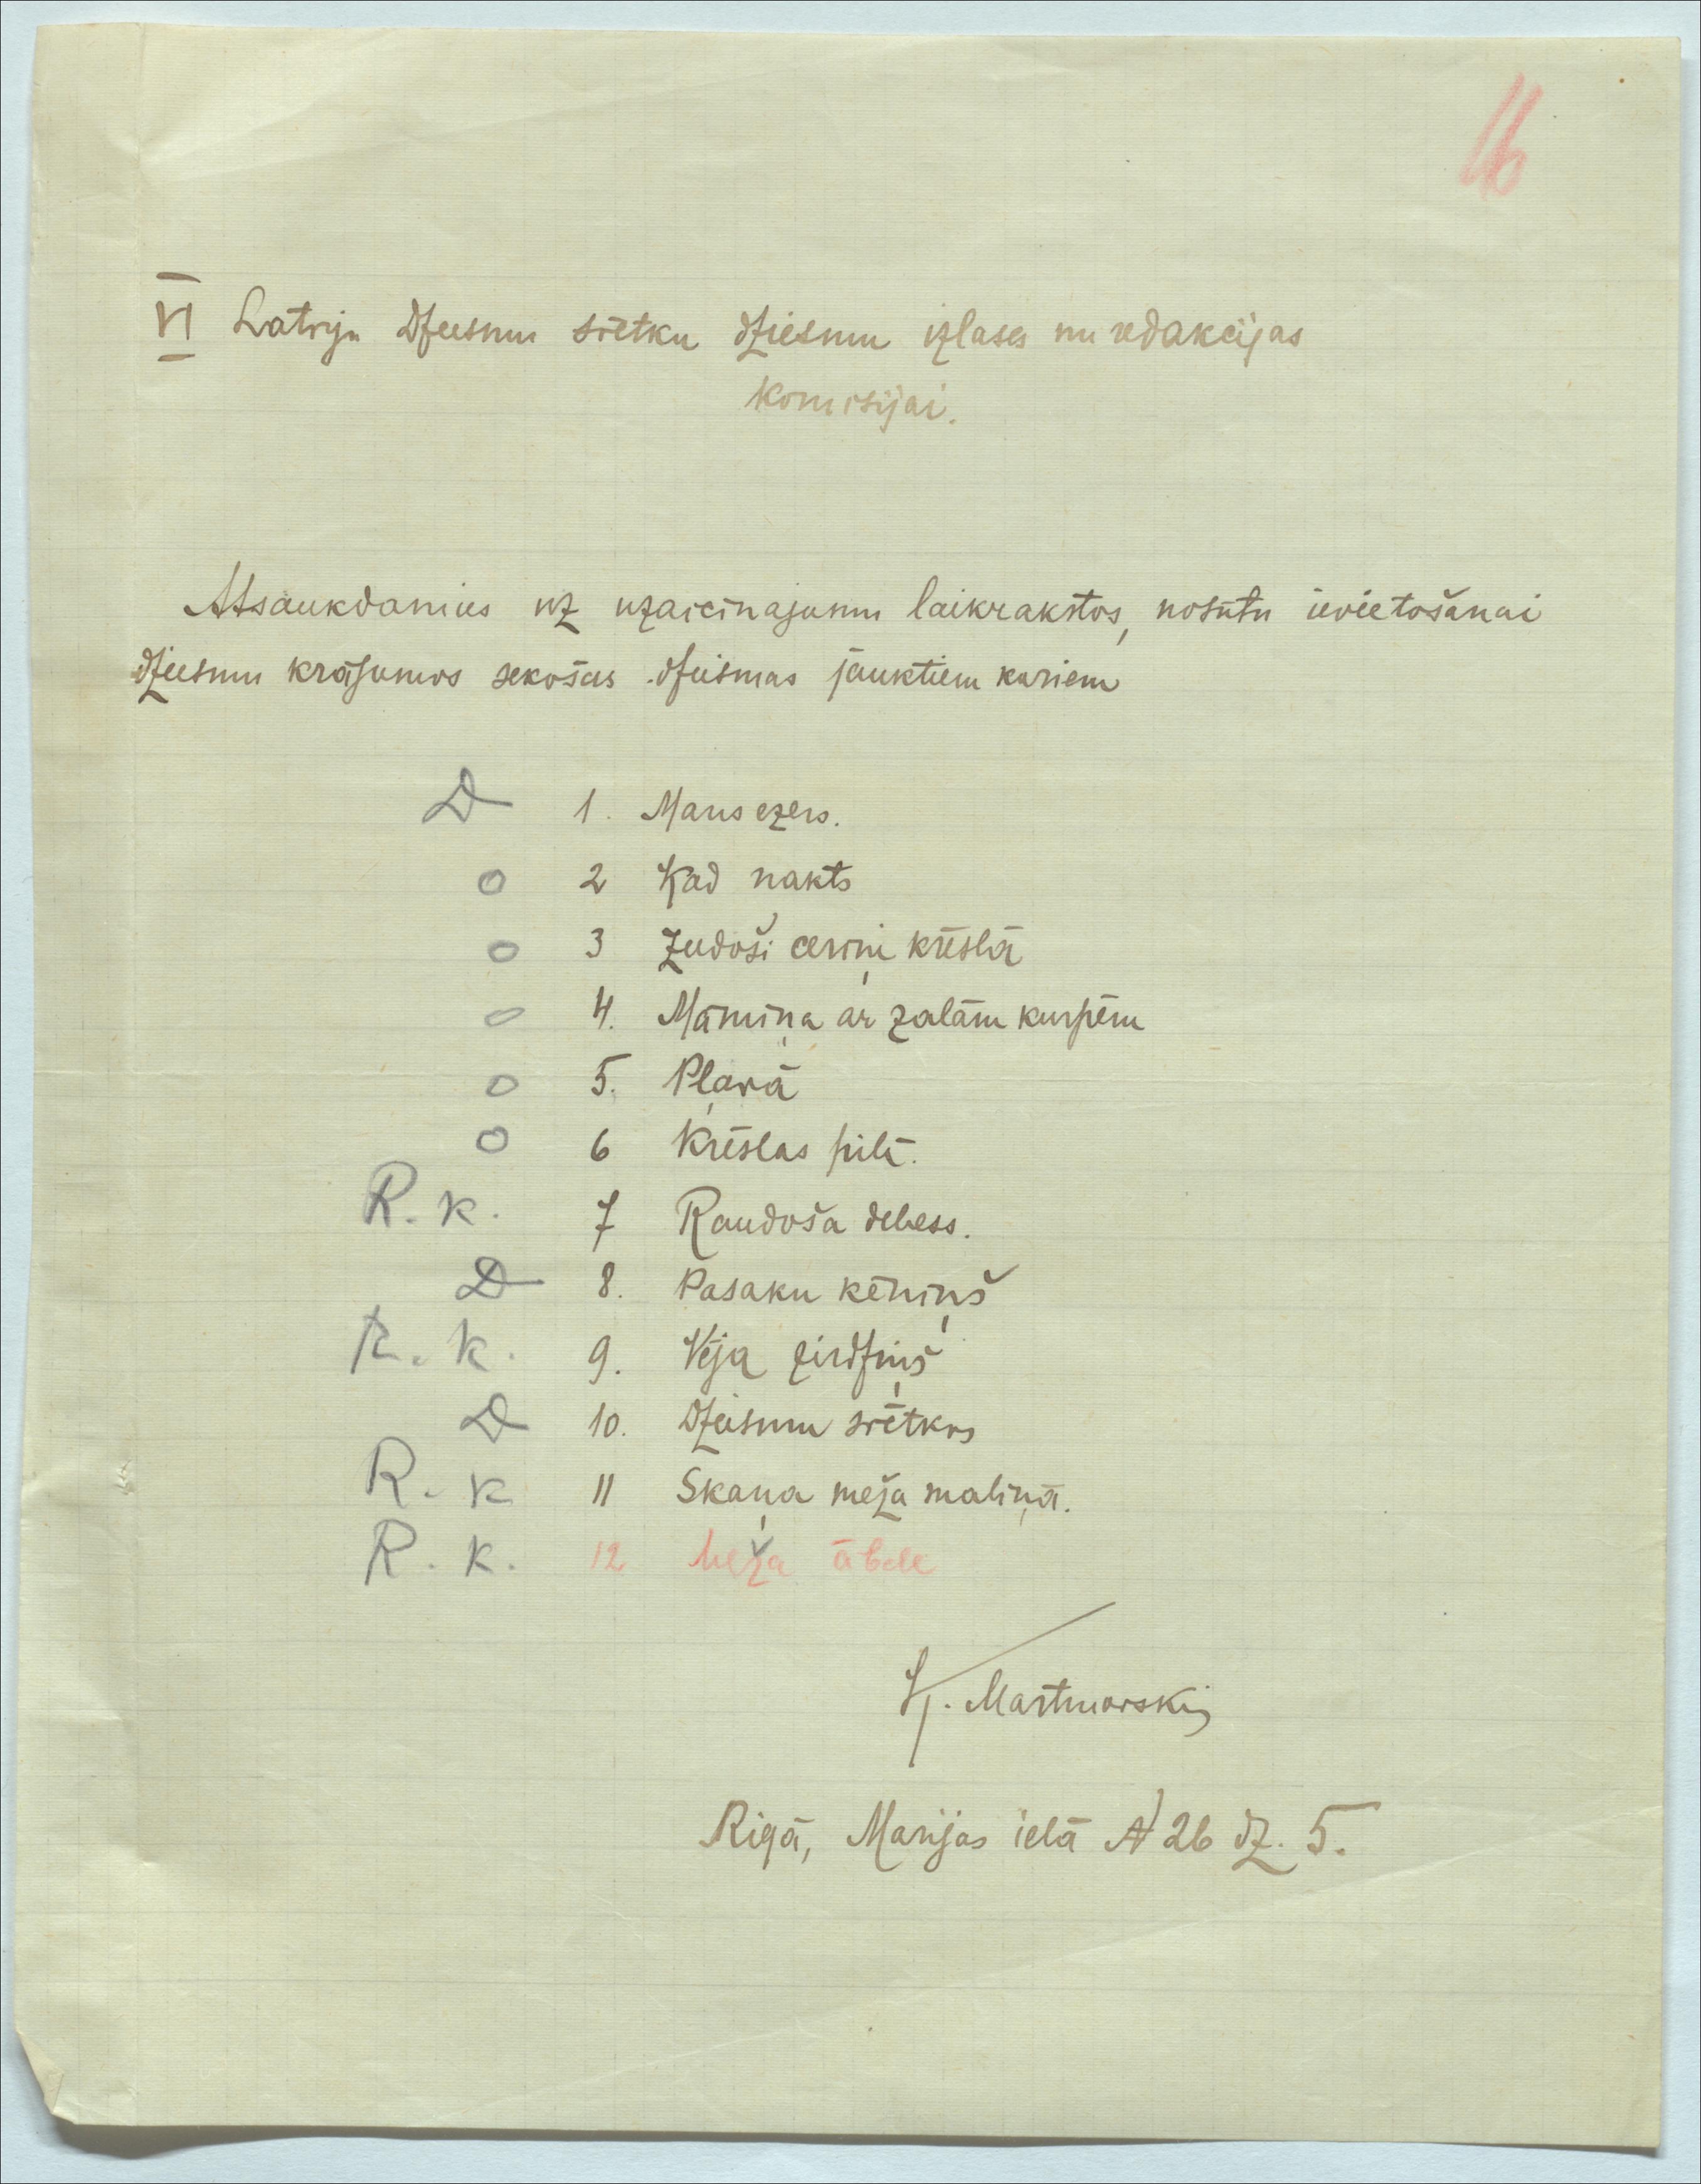 16
VI Latvju Dziesmu svētku dziesmu izlases un redakcijas
Komisijai.
Atsaukdamies uz uzaicinajumu laikrakstos, nosūtu ievietošanai
dziesmu krājumos sekošas dziesmas jauktiem koriem
D 1. Mans ezers.
o 2 Kad nakts
o 3 Ziedoši ceriņi krēslā
o 4. Māmiņa ar zaļām kurpēm
o 5. Pļavā
o 6 Krēslas pilī.
R. k. 7 Raudoša debess.
D 8. Pasaku ķēniņš
R. k. 9. Vēja zirdziņš
D 10. Dziesmu svētkos
R. k 11 Skaņa meža maliņā.
R. k. 12 Meža ābele
Rigā, Marijas ielā № 26 dz. 5.